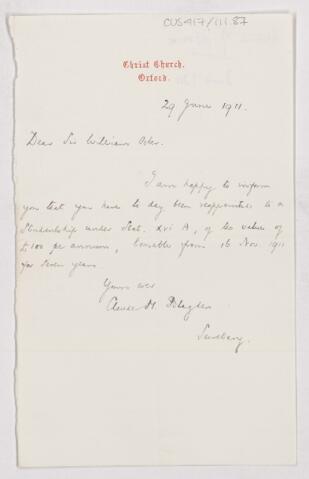 CUS417/111.87
Christ Church,
Oxford.
29 June 1911.
Dear Sir William Osler.
I am happy to inform
you that you have to day been reappointed to a
Studentship under Stat. xvi A, of the value of
£100 per annum, tenable from 16 Nov. 1911
for seven years.
Yours ever
H.
Secretary.